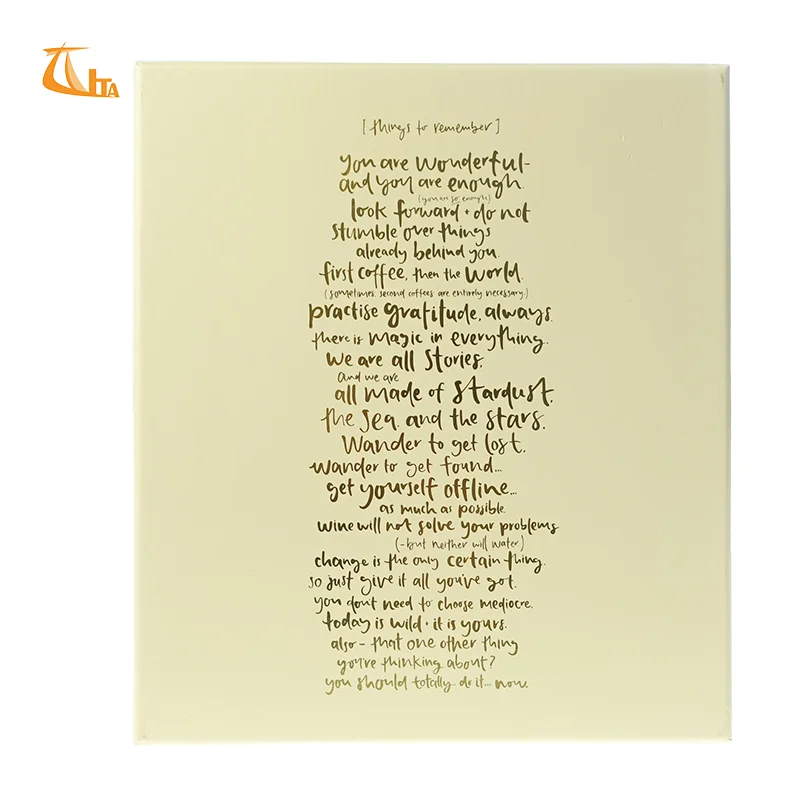 HTA
[things to remember]
you are wonderful-
and you are enough.
(you are so enough)
look forward + do not
stumble over things
already behind you.
first coffee, then the world.
(sometimes, second coffees are entirely necessary.)
practise gratitude, always.
there is magic in everything.
we are all stories.
and we are
all made of stardust.
the sea, and the stars.
wander to get lost.
wander to get found...
get yourself offline...
as much as possible.
wine will not solve your problems
(-but neither will water.)
change is the only certain thing.
so just give it all you've got.
you don't need to choose mediocre.
today is wild + it is yours.
also - that one other thing
you're thinking about?
you should totally do it... now.